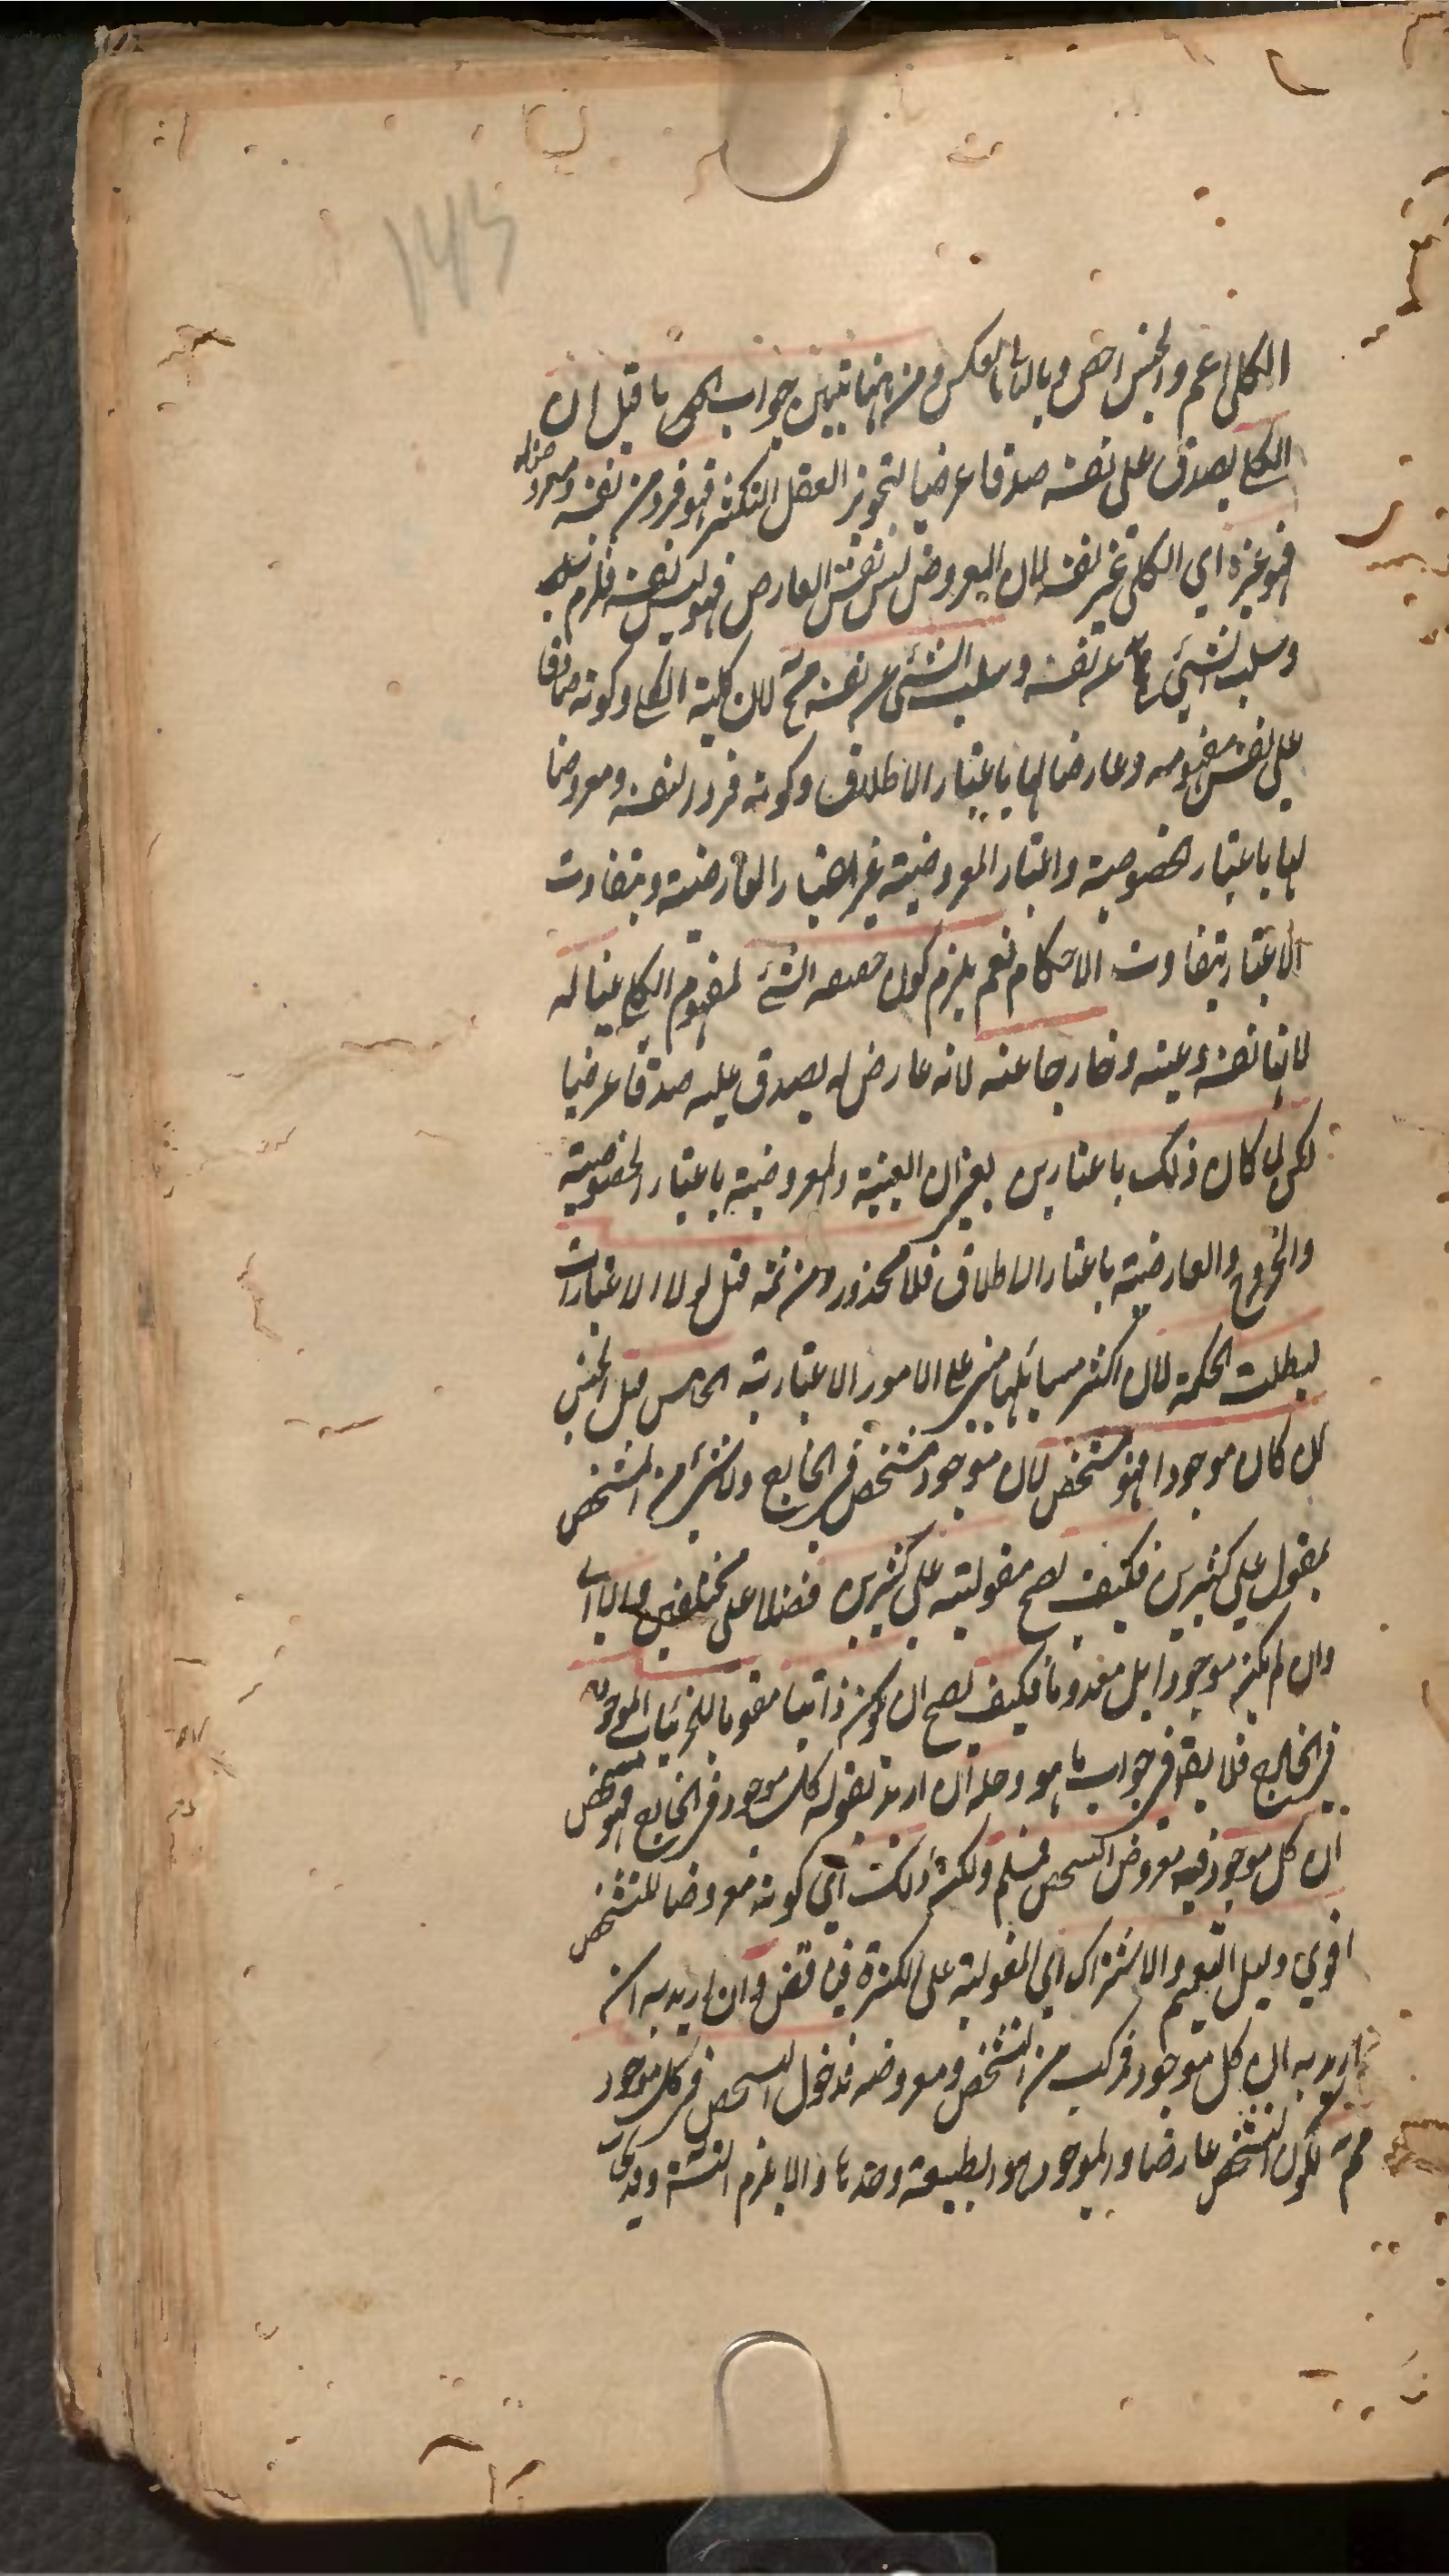 143
الكلي اعم والجنس اخص وبالثاني بالعكس ومن ههنا تبين جواب ما قيل ان
الكلي يصدق على نفسه صدقا عرضيا لتجويز العقل التكثر فهو فرد من نفسه ومعروضا له
فهو غيره اي الكلي غير نفسه لان المعروض ليس نفس العارض فهو ليس نفسه فلزم سلبه
وسلب الشيء عن نفسه وسلب الشيء عن نفسه مح لان كلية الكلي وكونه صادقا
على نفس مفهومه وعارضا لها باعتبار الاطلاق وكونه فردا لنفسه ومعروضا
لها باعتبار الخصوصية واعتبار المعروضية غير اعتبار العارضية وبتفاوت
الاعتبار يتفاوت الاحكام نعم يلزم كون حقيقة الشيء لمفهوم الكلي عينا له
لانها نفسه وعينه وخارجا عنه لانه عارض له يصدق عليه صدقا عرضيا
لكن لما كان ذلك باعتبارين يعني ان العينية والمعروضية باعتبار الخصوصية
والخروج والعارضية باعتبار الاطلاق فلا محذور ومن ثمه قيل لولا الاعتبارات
لبطلت الحكمة لان اكثر مسائلها مبني على الامور الاعتبارية الخامس قيل الجنس
ان كان موجودا فهو متشخص لان موجود متشخص في الخارج ولا شيء من المتشخص
بمقول على كثيرين فكيف يصح مقوليته على كثيرين فضلا على مختلفين والا اي
وان لم يكن موجودا بل معدوما فكيف يصح ان يكون ذاتيا مقوما للجزئيات الموجوده
في الخارج فلا يقع في جواب ما هو وحله ان اريد بقوله كل موجود في الخارج فهو متشخص
ان كل موجود فيه معروض التشخص فمسلم ولكن ذلك اي كونه معروضا للتشخص
اقوى دليل التعميم والاشتراك اي المقولية على الكثرة فين قض وان اريد به ان
اريد به ان كل موجود مركب من التشخص ومعروضه فدخول التشخص في كل موجود
مم لكون التشخص عارضا والموجود هو الطبيعة وحدها والا يلزم